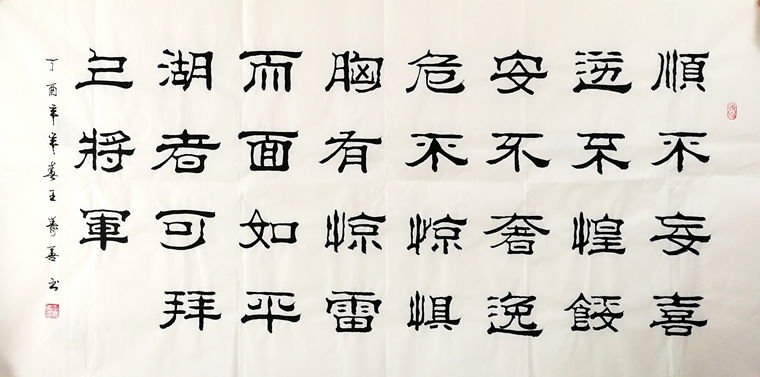 順不妄喜
逆不惶餒
安不奢逸
危不惊惧
胸有惊雷
而面如平
湖者可拜
上將軍
丁酉年
王善书